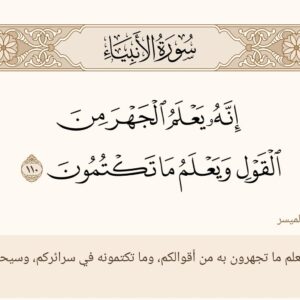 سُورَةُ الأَنبِيَاء
إِنَّهُۥ يَعۡلَمُ ٱلۡجَهۡرَ مِنَ
ٱلۡقَوۡلِ وَيَعۡلَمُ مَا تَكۡتُمُونَ ١١٠
الميسر
علم ما تجهرون به من أقوالكم، وما تكتمونه في سرائركم، وسيحا